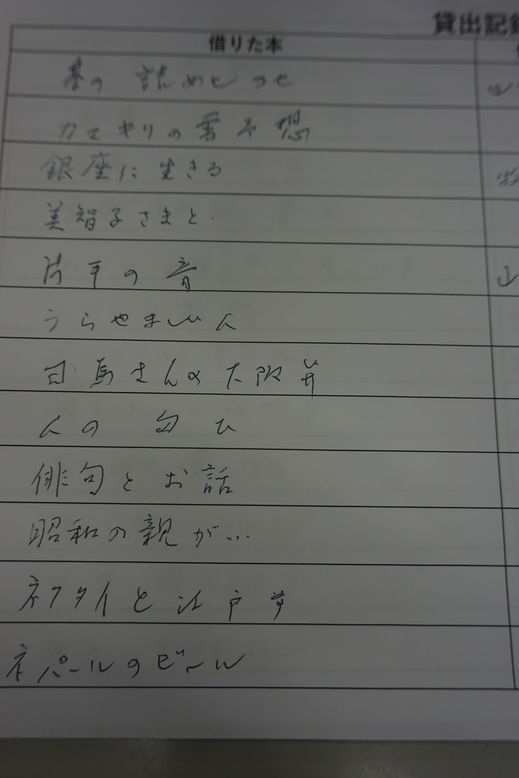 貸出記録
借りた本
の 詰め
カマキリの雪予想
銀座に生きる
美智子さまと.
片手の音
うらやましい人
司馬さんの大阪弁
人の 匂ひ
俳句とお話
昭和の親が…
ネクタイと江戸
ネパールのビール